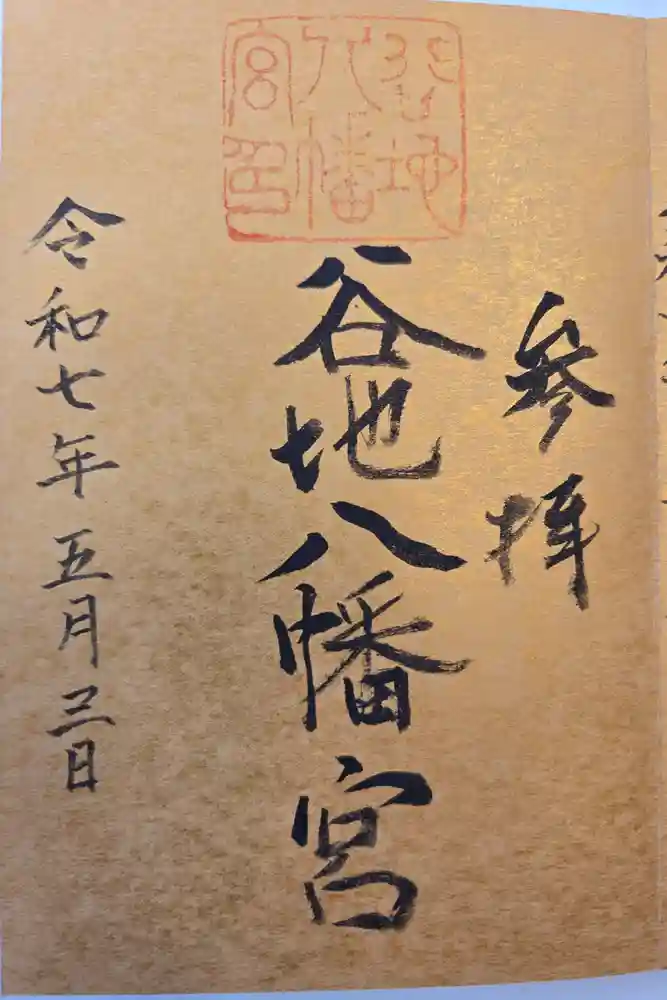 参拝
谷地八幡宮
谷地
八幡
宮印
令和七年五月三日